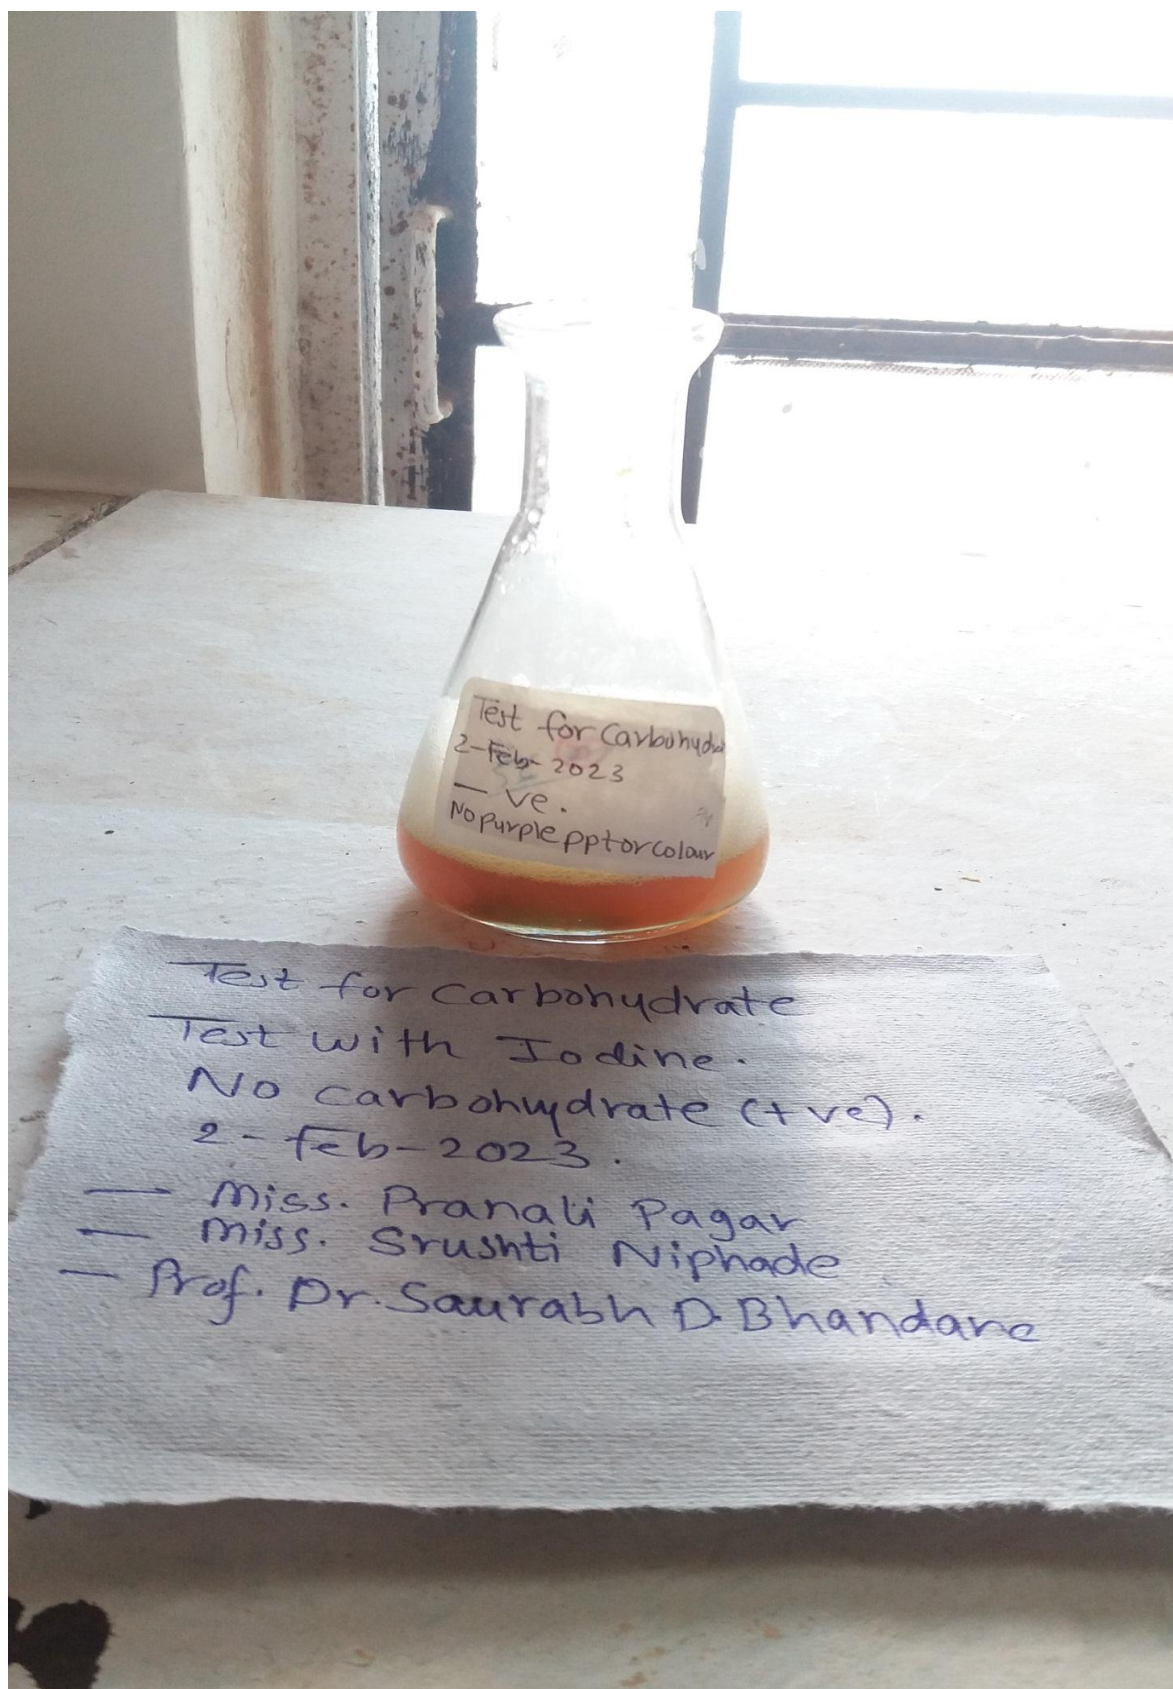 Test for Carbohydra
2-Feb-2023
- ve.
No purple ppt or colour
Test for Carbohydrate
Test with Iodine.
No carbohydrate (+ve).
2-feb-2023.
— Miss. Pranali Pagar
— Miss. Srushti Niphade
— Prof. Dr. Saurabh D. Bhandare